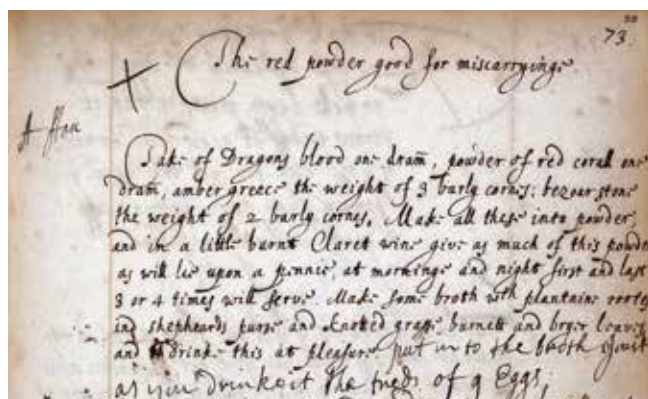 73.
The red powder good for miscarryinge
Take of Dragons blood one dram̄, powder of red corall one
dram̄, amber greece the weight of 3 barly cornes; bezoar stone
the weight of 2 barly cornes. Make all these into powder,
and in a little burnt Claret wine give as much of this powder
as will lie upon a pennie, at morninge and night first and last
3 or 4 times will serve. Make some broth with plantaine rootes
and shepheards purse and knotted grasse burnett and bryer leaves
and drinke this at pleasure put in to the broth
as you drinke it the treds of 9 Eggs,